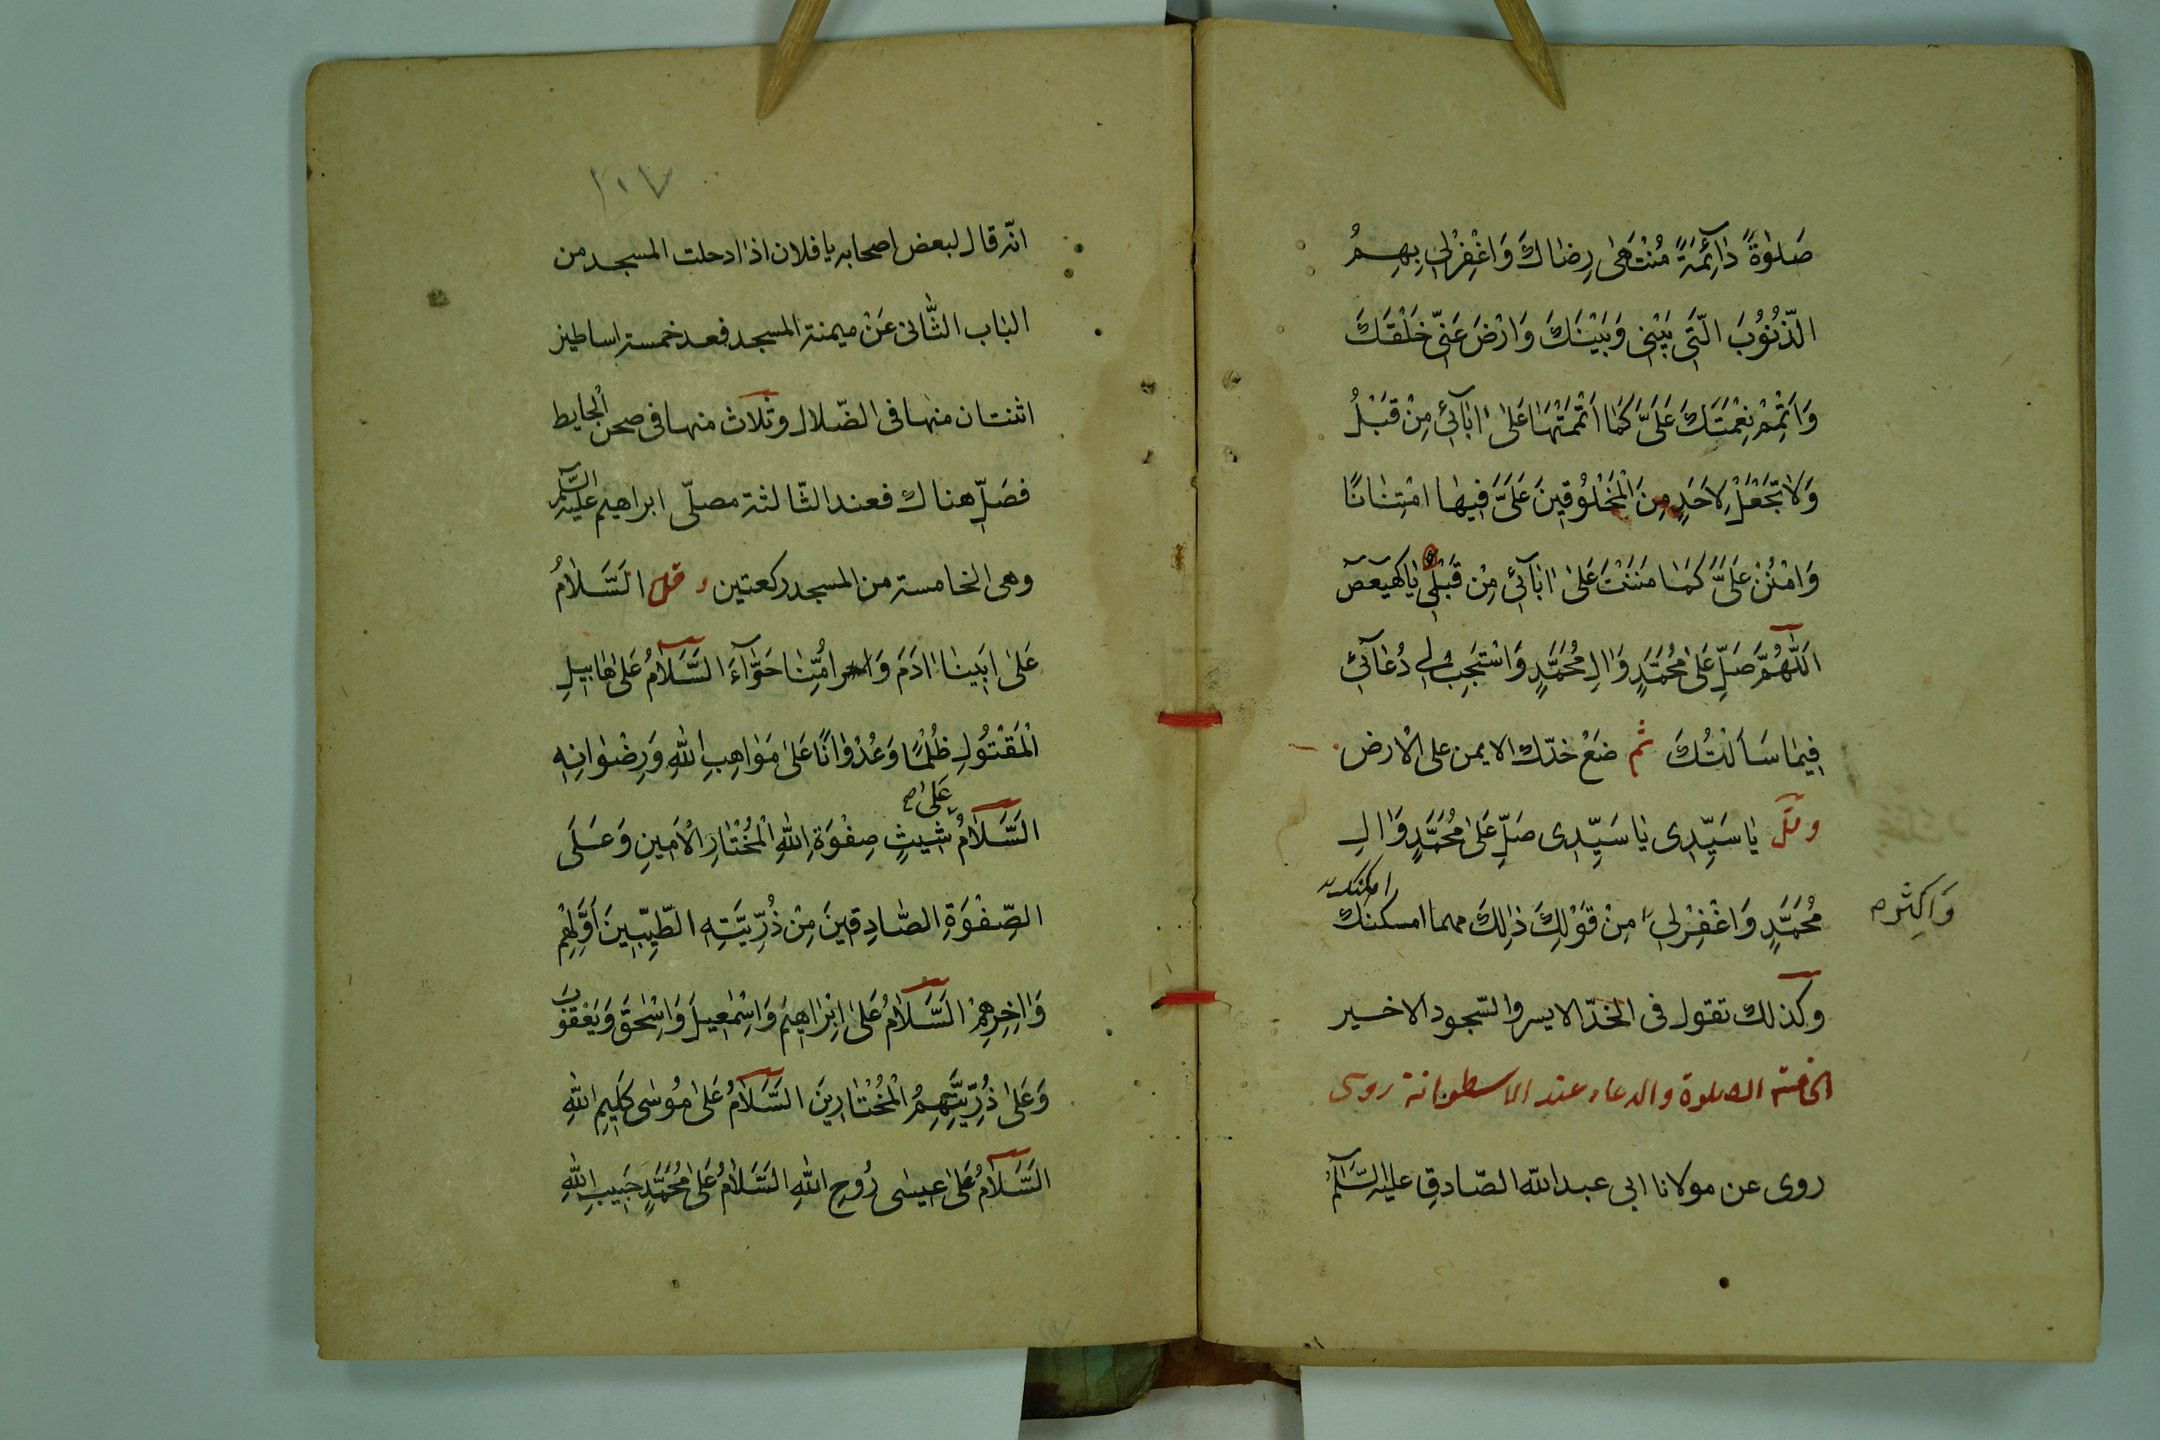 صَلوٰةً دٰآئِمَةً مُنْتَهىٰ رِضٰاكَ وَاغْفِرْلي بِهِمُ
الذُّنُوُبَ الَّتي بَيْني وَبَيْنَكَ وَارْضَ عَنّي خَلْقَكَ
وَاَتْمِمْ نِعْمَتَكَ عَلَيَّ كَمٰا اَتْمَمْتَهٰا عَلىٰ اٰبٰآئي مِنْ قَبْلُ
وَلاٰ تَجْعَلْ لِاَحَدٍ مِنَ الْمَخْلُوُقينَ عَلَيَّ فيهٰا امْتِنٰانًا
وَامْنُنْ عَلَيَّ كَمٰا مَنَنْتَ عَلىٰ اٰبٰآئي مِنْ قَبْلُ يٰا كهيعص
اَللّٰهُمَّ صَلِّ عَلىٰ مُحَمَّدٍ وَاٰلِ مُحَمَّدٍ وَاسْتَجِبْ لي دُعٰآئي
فيمٰا سَأَلْتُكَ ثم ضَعْ خدّك الايمن على الارض
وقل يٰا سَيِّدي يٰا سَيِّدي صَلِّ عَلىٰ مُحَمَّدٍ وَاٰلِ
مُحَمَّدٍ وَاغْفِرْلي مِنْ قَوْلِكَ ذٰلِكَ مهما امسكنك
امكنك
وَاكثِرْ
وكذلك تقول فى الخدّ الايسر والسّجود الاخير
الخامسة الصلوة والدعاء عند الاسطوانة روى
روى عن مولانا ابى عبدالله الصّادق عليه السَّلٰامُ
١٠٧
انّه قال لبعض اصحابه يا فلان اذا ادحلت المسجد من
البٰاب الثّٰانى عَنْ ميمنة المسجد فعد خمسة اساطين
اثنتان منها فى الضّلال وثلاث منها فى صحن الحايط
فصَلِّ هناك فعند الثّالثة مصلّى ابراهيم عليه السَّلٰم
وهى الخامسة من المسجد ركعتين و قل اَلسَّلٰامُ
عَلىٰ اَبينٰا اٰدَمَ وَ اُمِّنٰا حَوّٰآءَ السَّلٰامُ عَلىٰ هٰابيلِ
الْمَقْتُوُلِ ظُلْمًا وَعُدْوٰانًا عَلىٰ مَوٰاهِبِ اللّٰهِ وَرِضْوٰانِهِ
عَلىٰ
السَّلٰامُ شيثٍ صِفْوَةِ اللّٰهِ الْمُخْتٰارِ الْاَمينِ وَعَلَى
الصِّفْوَةِ الصّٰادِقينَ مِنْ ذُرِّيَّتِهِ الطَّيِّبينَ اَوَّلِهِمْ
وَاٰخِرِهِمْ السَّلٰامُ عَلىٰ اِبْرٰاهيمَ وَاِسْمٰعيلَ وَاِسْحٰقَ وَيَعْقُوُبَ
وَعَلىٰ ذُرِّيَّتِهِمُ الْمُخْتٰارينَ السَّلٰامُ عَلىٰ مُوُسٰى كَليمِ اللّٰهِ
اَلسَّلٰامُ عَلىٰ عيسٰى رُوُحِ اللّٰهِ السَّلٰامُ عَلىٰ مُحَمَّدٍ حَبيبِ اللّٰهِ